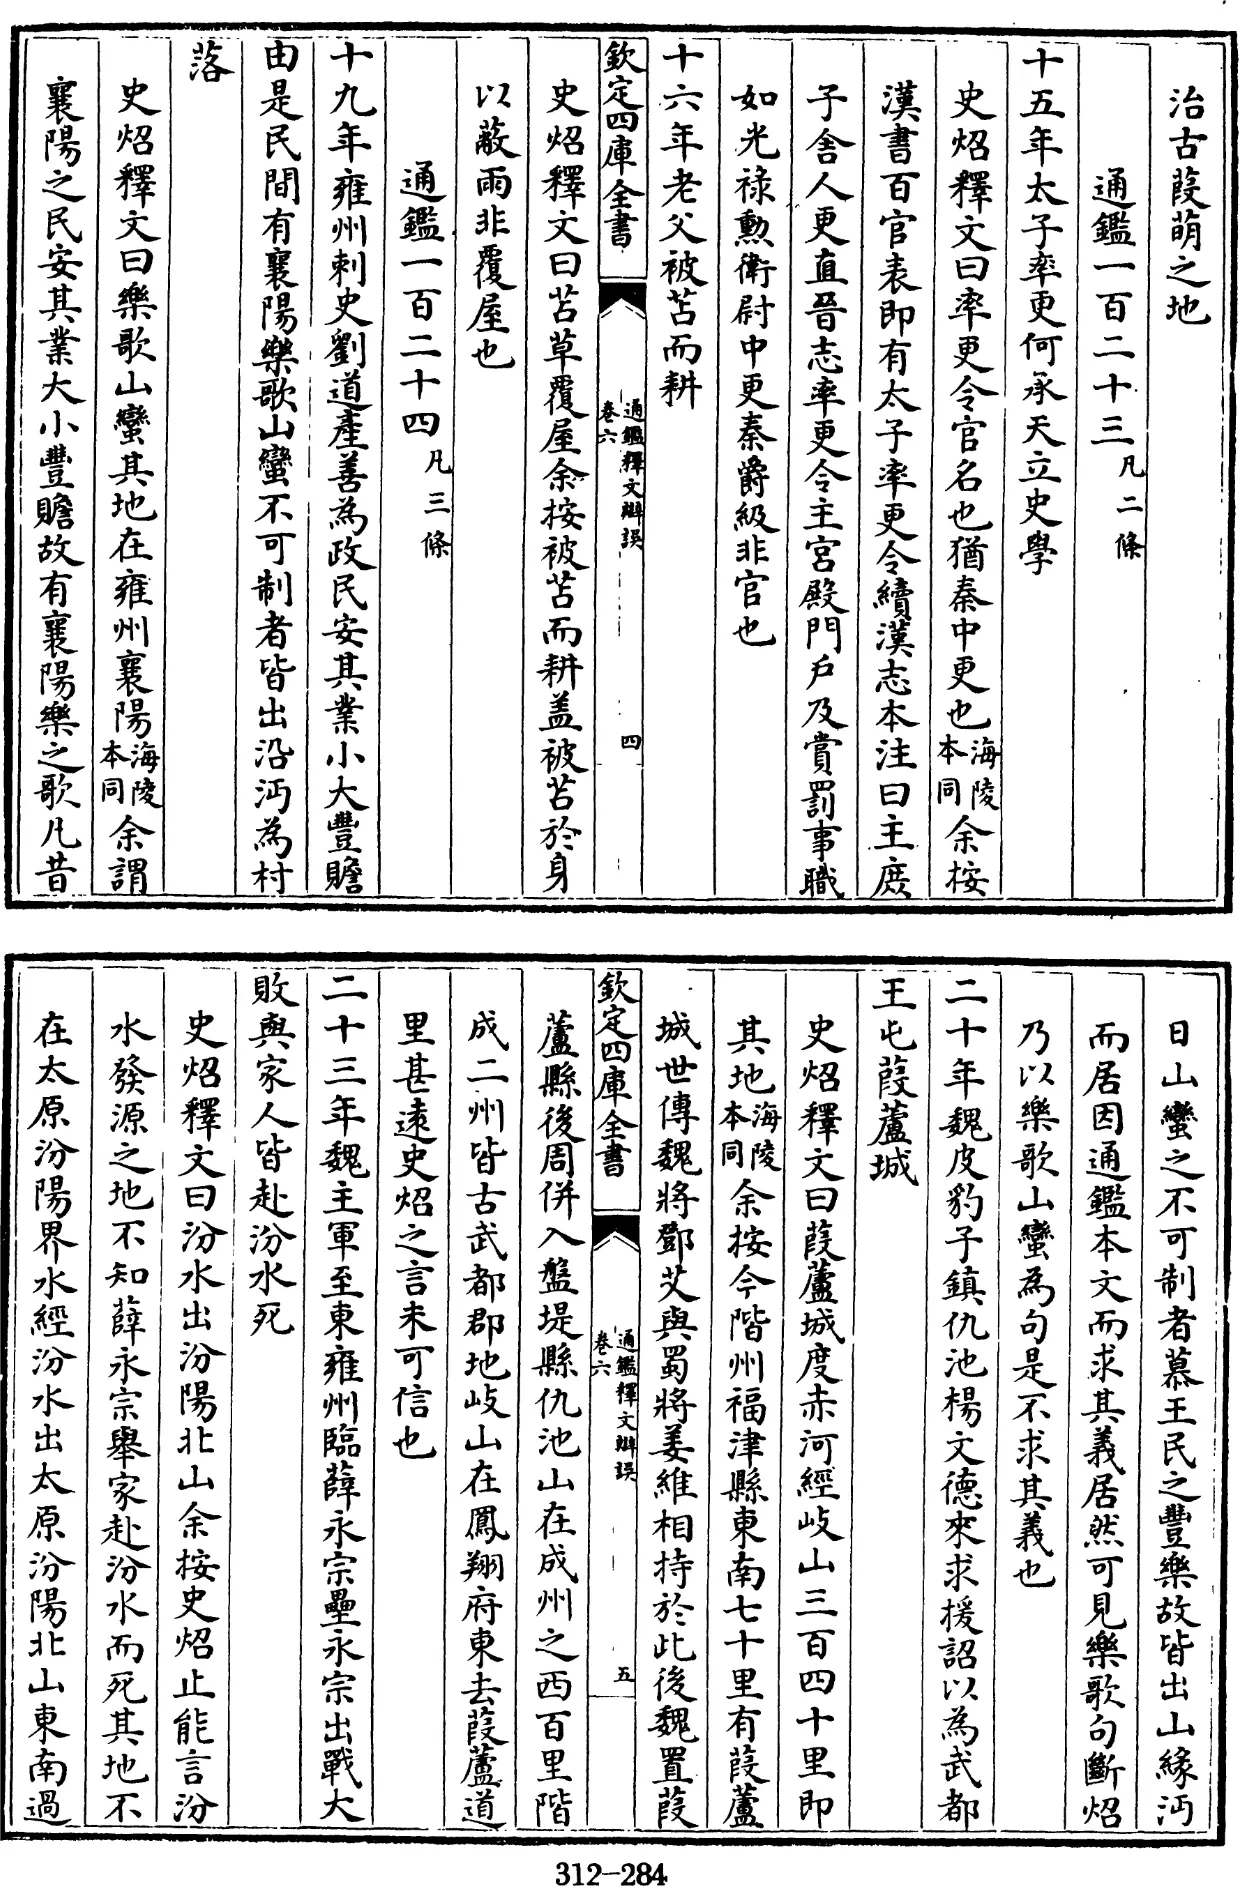 治古葭萌之地
通鑑一百二十三凡二條
十五年太子率更何承天立史學
史炤釋文曰率更令官名也猶秦中更也海陵本同余按
漢書百官表即有太子率更令續漢志本注曰主庶
子舍人更直晉志率更令主宮殿門戶及賞罰事職
如光祿勲衛尉中更秦爵級非官也
十六年老父被苫而耕
欽定四庫全書
通鑑釋文辯誤
卷六
四
史炤釋文曰苫草覆屋余按被苫而耕盖被苫於身
以蔽雨非覆屋也
通鑑一百二十四凡三條
十九年雍州刺史劉道產善為政民安其業小大豐贍
由是民間有襄陽樂歌山蠻不可制者皆出沿沔為村
落
史炤釋文曰樂歌山蠻其地在雍州襄陽海陵本同余謂
襄陽之民安其業大小豐贍故有襄陽樂之歌凡昔
日山蠻之不可制者慕王民之豐樂故皆出山緣沔
而居因通鑑本文而求其義居然可見樂歌句斷炤
乃以樂歌山蠻為句是不求其義也
二十年魏皮豹子鎮仇池楊文德來求援詔以為武都
王屯葭蘆城
史炤釋文曰葭蘆城度赤河經岐山三百四十里即
其地海陵本同余按今階州福津縣東南七十里有葭蘆
城世傳魏將鄧艾與蜀將姜維相持於此後魏置葭
欽定四庫全書
通鑑釋文辯誤
卷六
五
蘆縣後周併入盤堤縣仇池山在成州之西百里階
成二州皆古武都郡地岐山在鳳翔府東去葭蘆道
里甚遠史炤之言未可信也
二十三年魏主軍至東雍州臨薛永宗壘永宗出戰大
敗與家人皆赴汾水死
史炤釋文曰汾水出汾陽北山余按史炤止能言汾
水發源之地不知薛永宗舉家赴汾水而死其地不
在太原汾陽界水經汾水出太原汾陽北山東南過
312-284